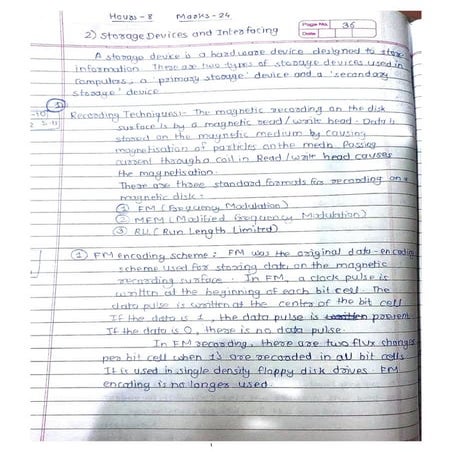 Hours - 8 Marks - 24
Page No. 36
Date
2) Storage Devices and Interfacing
A storage device is a hardware device designed to store
information. There are two types of storage devices used in
computers, a 'primary storage' device and a 'secondary
storage' device
① Recording Techniques:- The magnetic recording on the disk
surface is by a magnetic read / write head. Data is
stored on the magnetic medium by causing
magnetisation of particles on the media. Passing
current through a coil in Read / write head causes
the magnetisation.
There are three standard formats for recording on a
magnetic disk:-
① FM (Frequency Modulation)
② MFM (Modified Frequency Modulation)
③ RLL (Run Length Limited)
① FM encoding scheme: FM was the original data-encoding
scheme used for storing data on the magnetic
recording surface. In FM, a clock pulse is
written at the beginning of each bit cell. The
data pulse is written at the center of the bit cell
If the data is 1, the data pulse is present
If the data is 0, there is no data pulse.
In FM recording, there are two flux changes
per bit cell when 1s are recorded in all bit cells.
It is used in single density floppy disk drives. FM
encoding is no longer used.
1